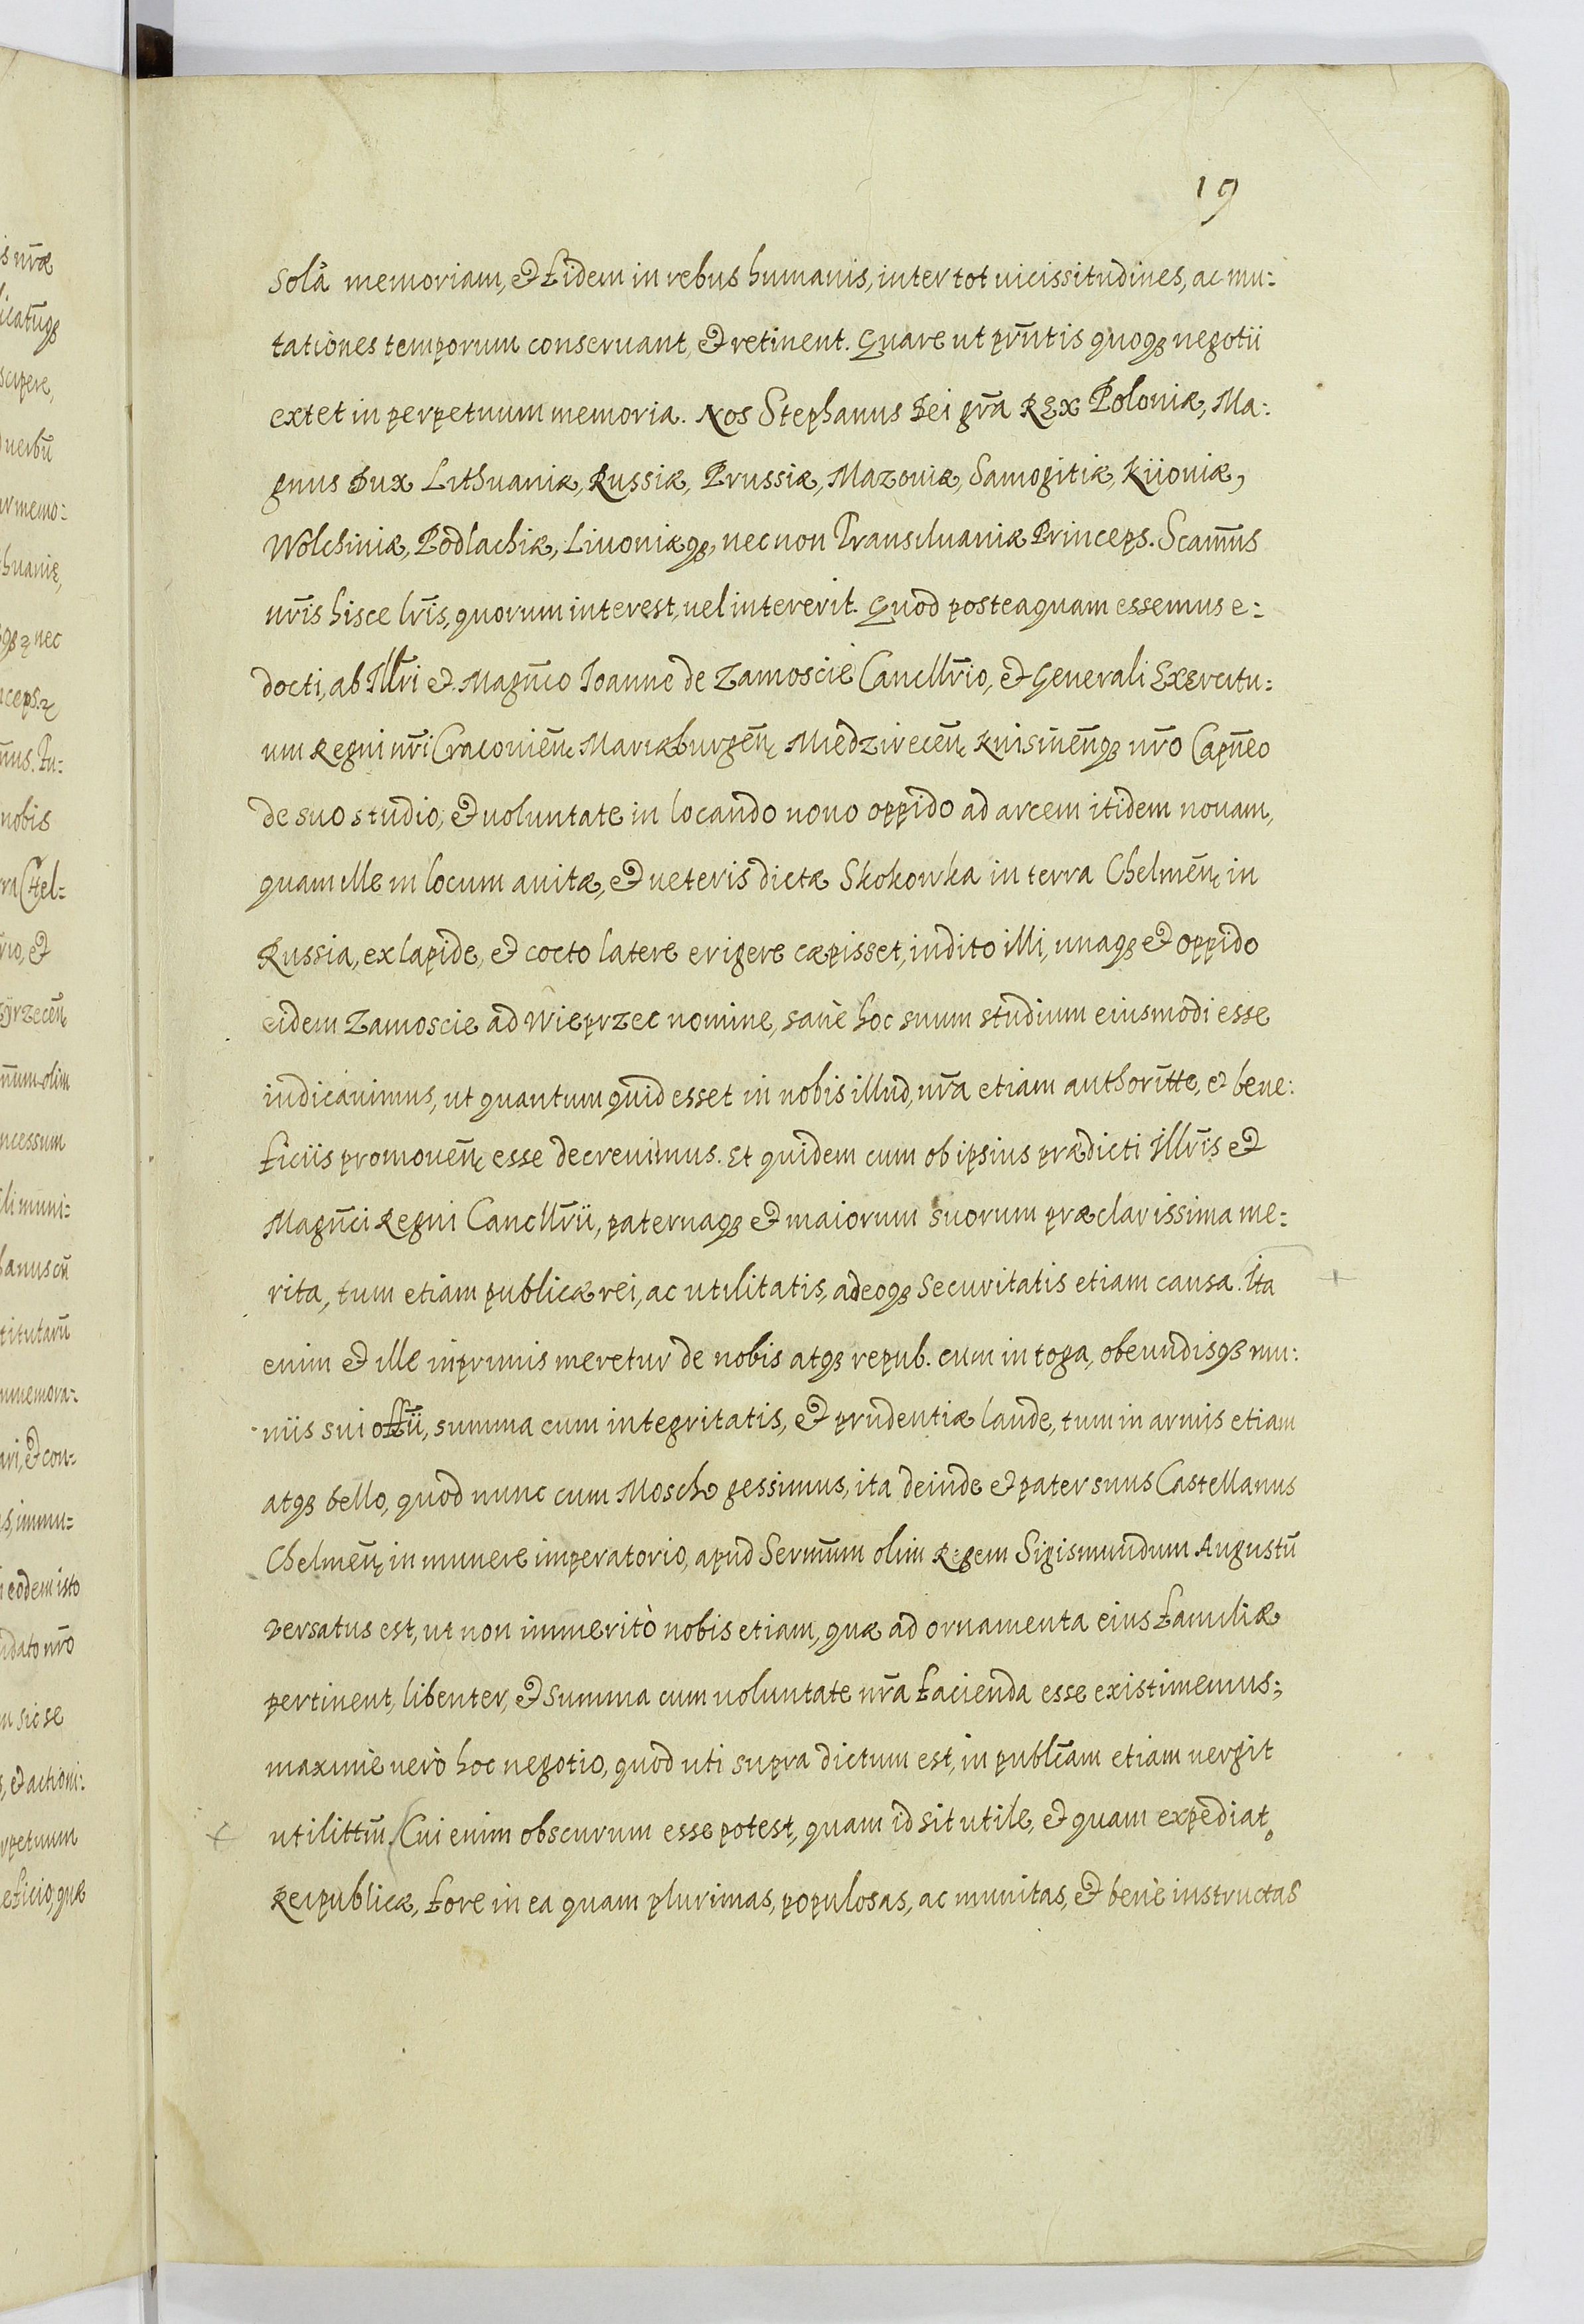 19
is nr̃æ
icatũqȝ
scipere,
verbũ
ar memo:
huaniȩ,
nec
nceps.
ñus. Fu:
nobis
rra Chel-
rio, et
zyrzecen̄
num olim
ncessum
ili muni:
hanus cũ
titutarũ
mmemora:
ari, et con:
s, immu:
eodem isto
ndato nr̃o
m sic se
s, et actioni:
rpetuum
eficio, quæ
solã memoriam, et fidem in rebus humanis, inter tot uicissitudines, ac mu:
tationes temporum conseruant, et retinent. Quare ut prñtis quoqȝ negotii
extet in perpetuum memoria. Nos Stephanus Dei gr̃a Rex Poloniæ, Ma:
gnus Dux Lithuaniæ, Russiæ, Prussiæ, Mazouiæ, Samogitiæ, Kijouiæ,
Wolchiniæ, Podlachiæ, Liuoniæqȝ, nec non Transiluaniæ Princeps. Scim̃us
nr̃is hisce lr̃is, quorum interest, uel intererit. Quod posteaquam essemus e:
docti, ab Illr̃i et Magñco Ioanne de Zamoscie Cancllr̃io, et Generali Exercitu:
um Regni nr̃i Cracouień, Mariæburgeń, Miedzireceń, Knisineńqȝ nr̃o Capñeo
de suo studio, et uoluntate in locando nouo oppido ad arcem itidem nouam,
quam ille in locum auitæ, et ueteris dictæ Skokowka in terra Chelmeń, in
Russia, ex lapide, et cocto latere erigere cæpisset, indito illi, unaqȝ et oppido
eidem Zamoscie ad Wieprzec nomine, sanè hoc suum studium eiusmodi esse
iudicauimus, ut quantum quid esset in nobis illud, nr̃a etiam authorĩtte, et bene:
ficiis promoueń, esse decreuimus. Et quidem cum ob ipsius prædicti Illr̃is et
Magñci Regni Cancllr̃ii, paternaqȝ et maiorum suorum præclarissima me:
rita, tum etiam publicæ rei, ac utilitatis, adeoqȝ securitatis etiam causa. Ita
enim et ille inprimis meretur de nobis atqȝ repub. cum in toga, obeundisqȝ mu:
niis sui offĩi, summa cum integritatis, et prudentiæ laude, tum in armis etiam
atqȝ bello, quod nunc cum Moscho gessimus, ita deinde et pater suus Castellanus
Chelmeń, in munere imperatorio, apud Serm̃um olim Regem Sigismundum Augustũ
versatus est, ut non immeritò nobis etiam, quæ ad ornamenta eius familiæ
pertinent, libenter, et summa cum uoluntate nr̃a facienda esse existimemus;
maximè uerò hoc negotio, quod uti supra dictum est, in publĩcam etiam uergit
utilittm̃. Cui enim obscurum esse potest, quam id sit utile, et quam expediat
Reipublicæ, fore in ea quam plurimas, populosas, ac munitas, et benè instructas